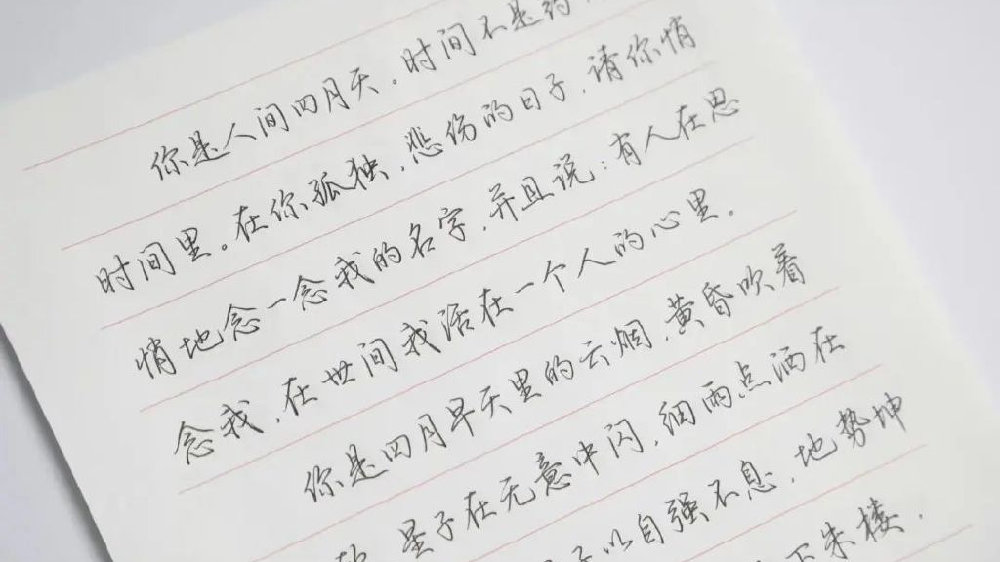 你是人间四月天。时间不是药
时间里。在你孤独、悲伤的日子，请你悄
悄地念一念我的名字，并且说：有人在思
念我，在世间我活在一个人的心里。
你是四月早天里的云烟，黄昏吹着
星子在无意中闪，细雨点洒在
子以自强不息；地势坤
下朱楼，